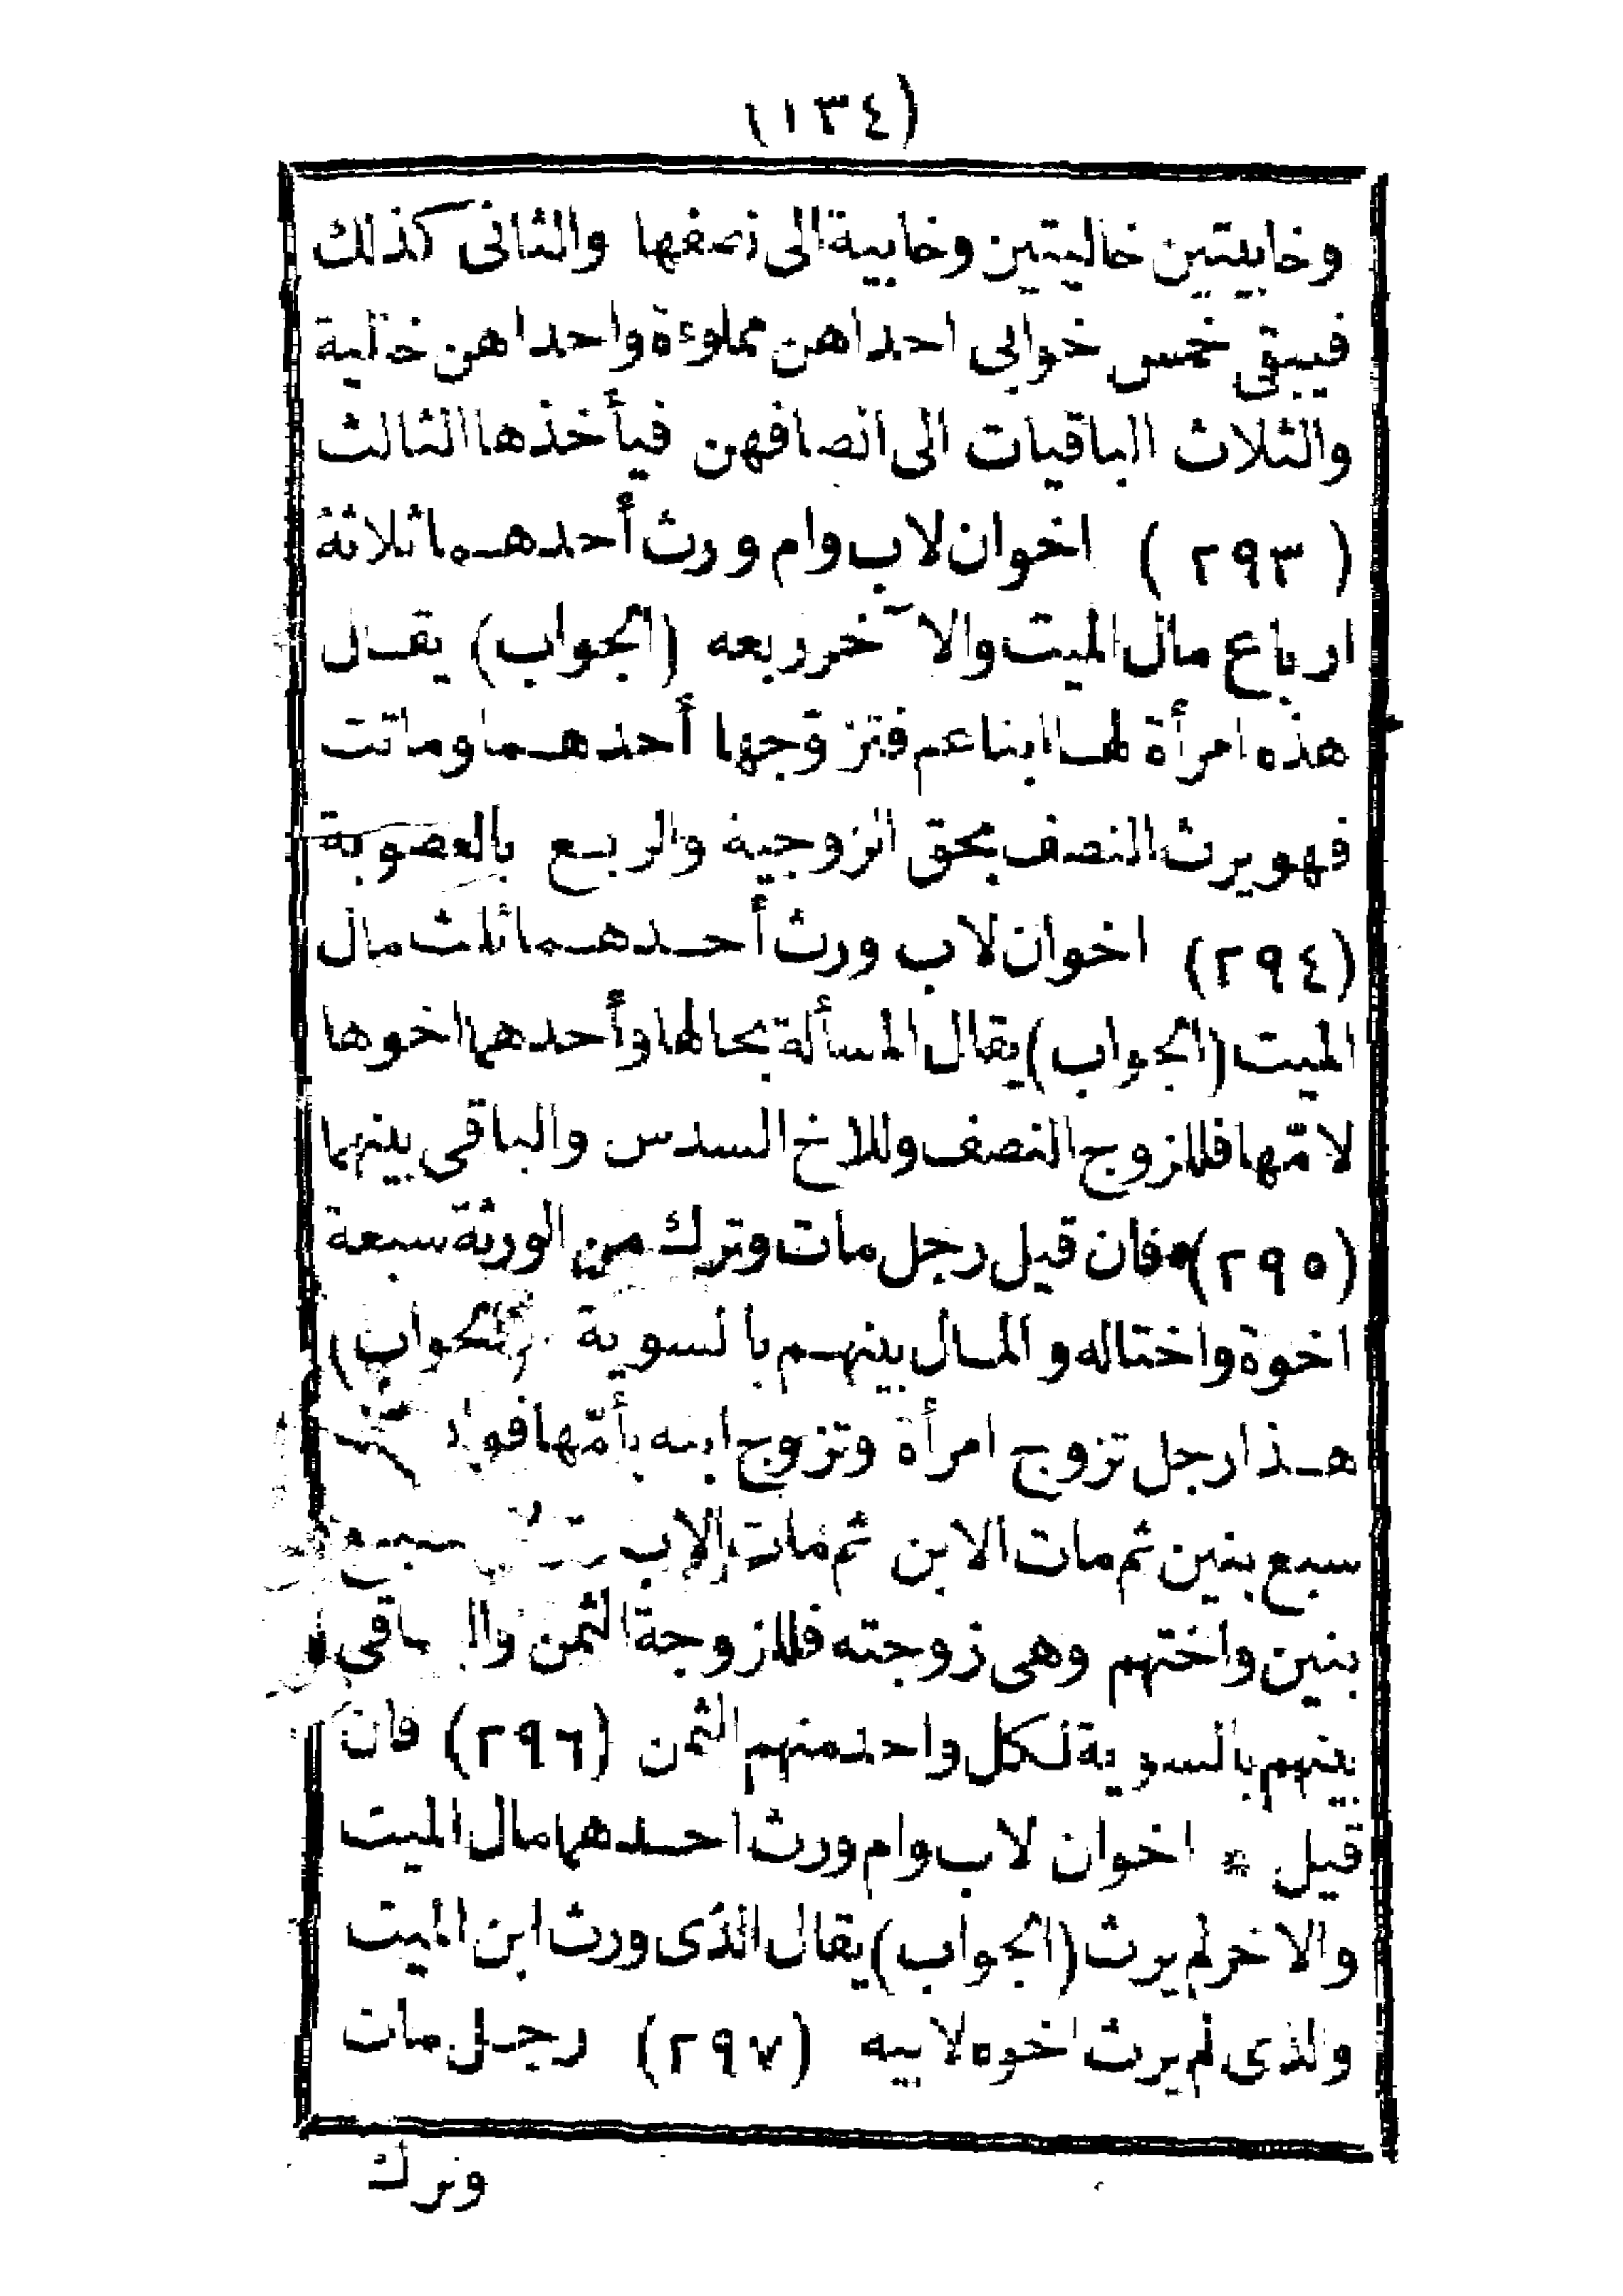 (١٣٤)
وخابيتين خاليتين وخابية الى نصفها والثانى كذلك
فيبقى خمس خوابى احداهن مملوءة واحداهن خالية
والثلاث الباقيات الى انصافهن فيأخذها الثالث
(٢٩٣) اخوان لاب وام ورث أحدهما ثلاثة
ارباع مال الميت والآخر ربعه (الجواب) يقال
هذه امرأة لها ابنا عم فتزوّجها أحدهما وماتت
فهو يرث النصف بحق الزوجية والربع بالعصوبة
(٢٩٤) اخوان لاب ورث أحدهما ثلث مال
الميت (الجواب) يقال المسألة بحالها وأحدهما اخوها
لامّها فللزوج النصف وللاخ السدس والباقى بينهما
(٢٩٥) فان قيل رجل مات وترك من الورثة سبعة
اخوة واختاله والمال بينهم بالسوية (الجواب)
هذا رجل تزوج امرأة وتزوج ابنه بأمّها
سبع بنين ثم مات الابن ثم مات الاب سبع
بنين واختهم وهى زوجته فللزوجة الثمن والباقى
بينهم بالسوية لكل واحد منهم الثمن (٢٩٦) فان
قيل * اخوان لاب وام ورث احدهما مال الميت
والاخر لم يرث (الجواب) يقال الذى ورث ابن الميت
والذى لم يرث اخوه لابيه (٢٩٧) رجل مات
وترك